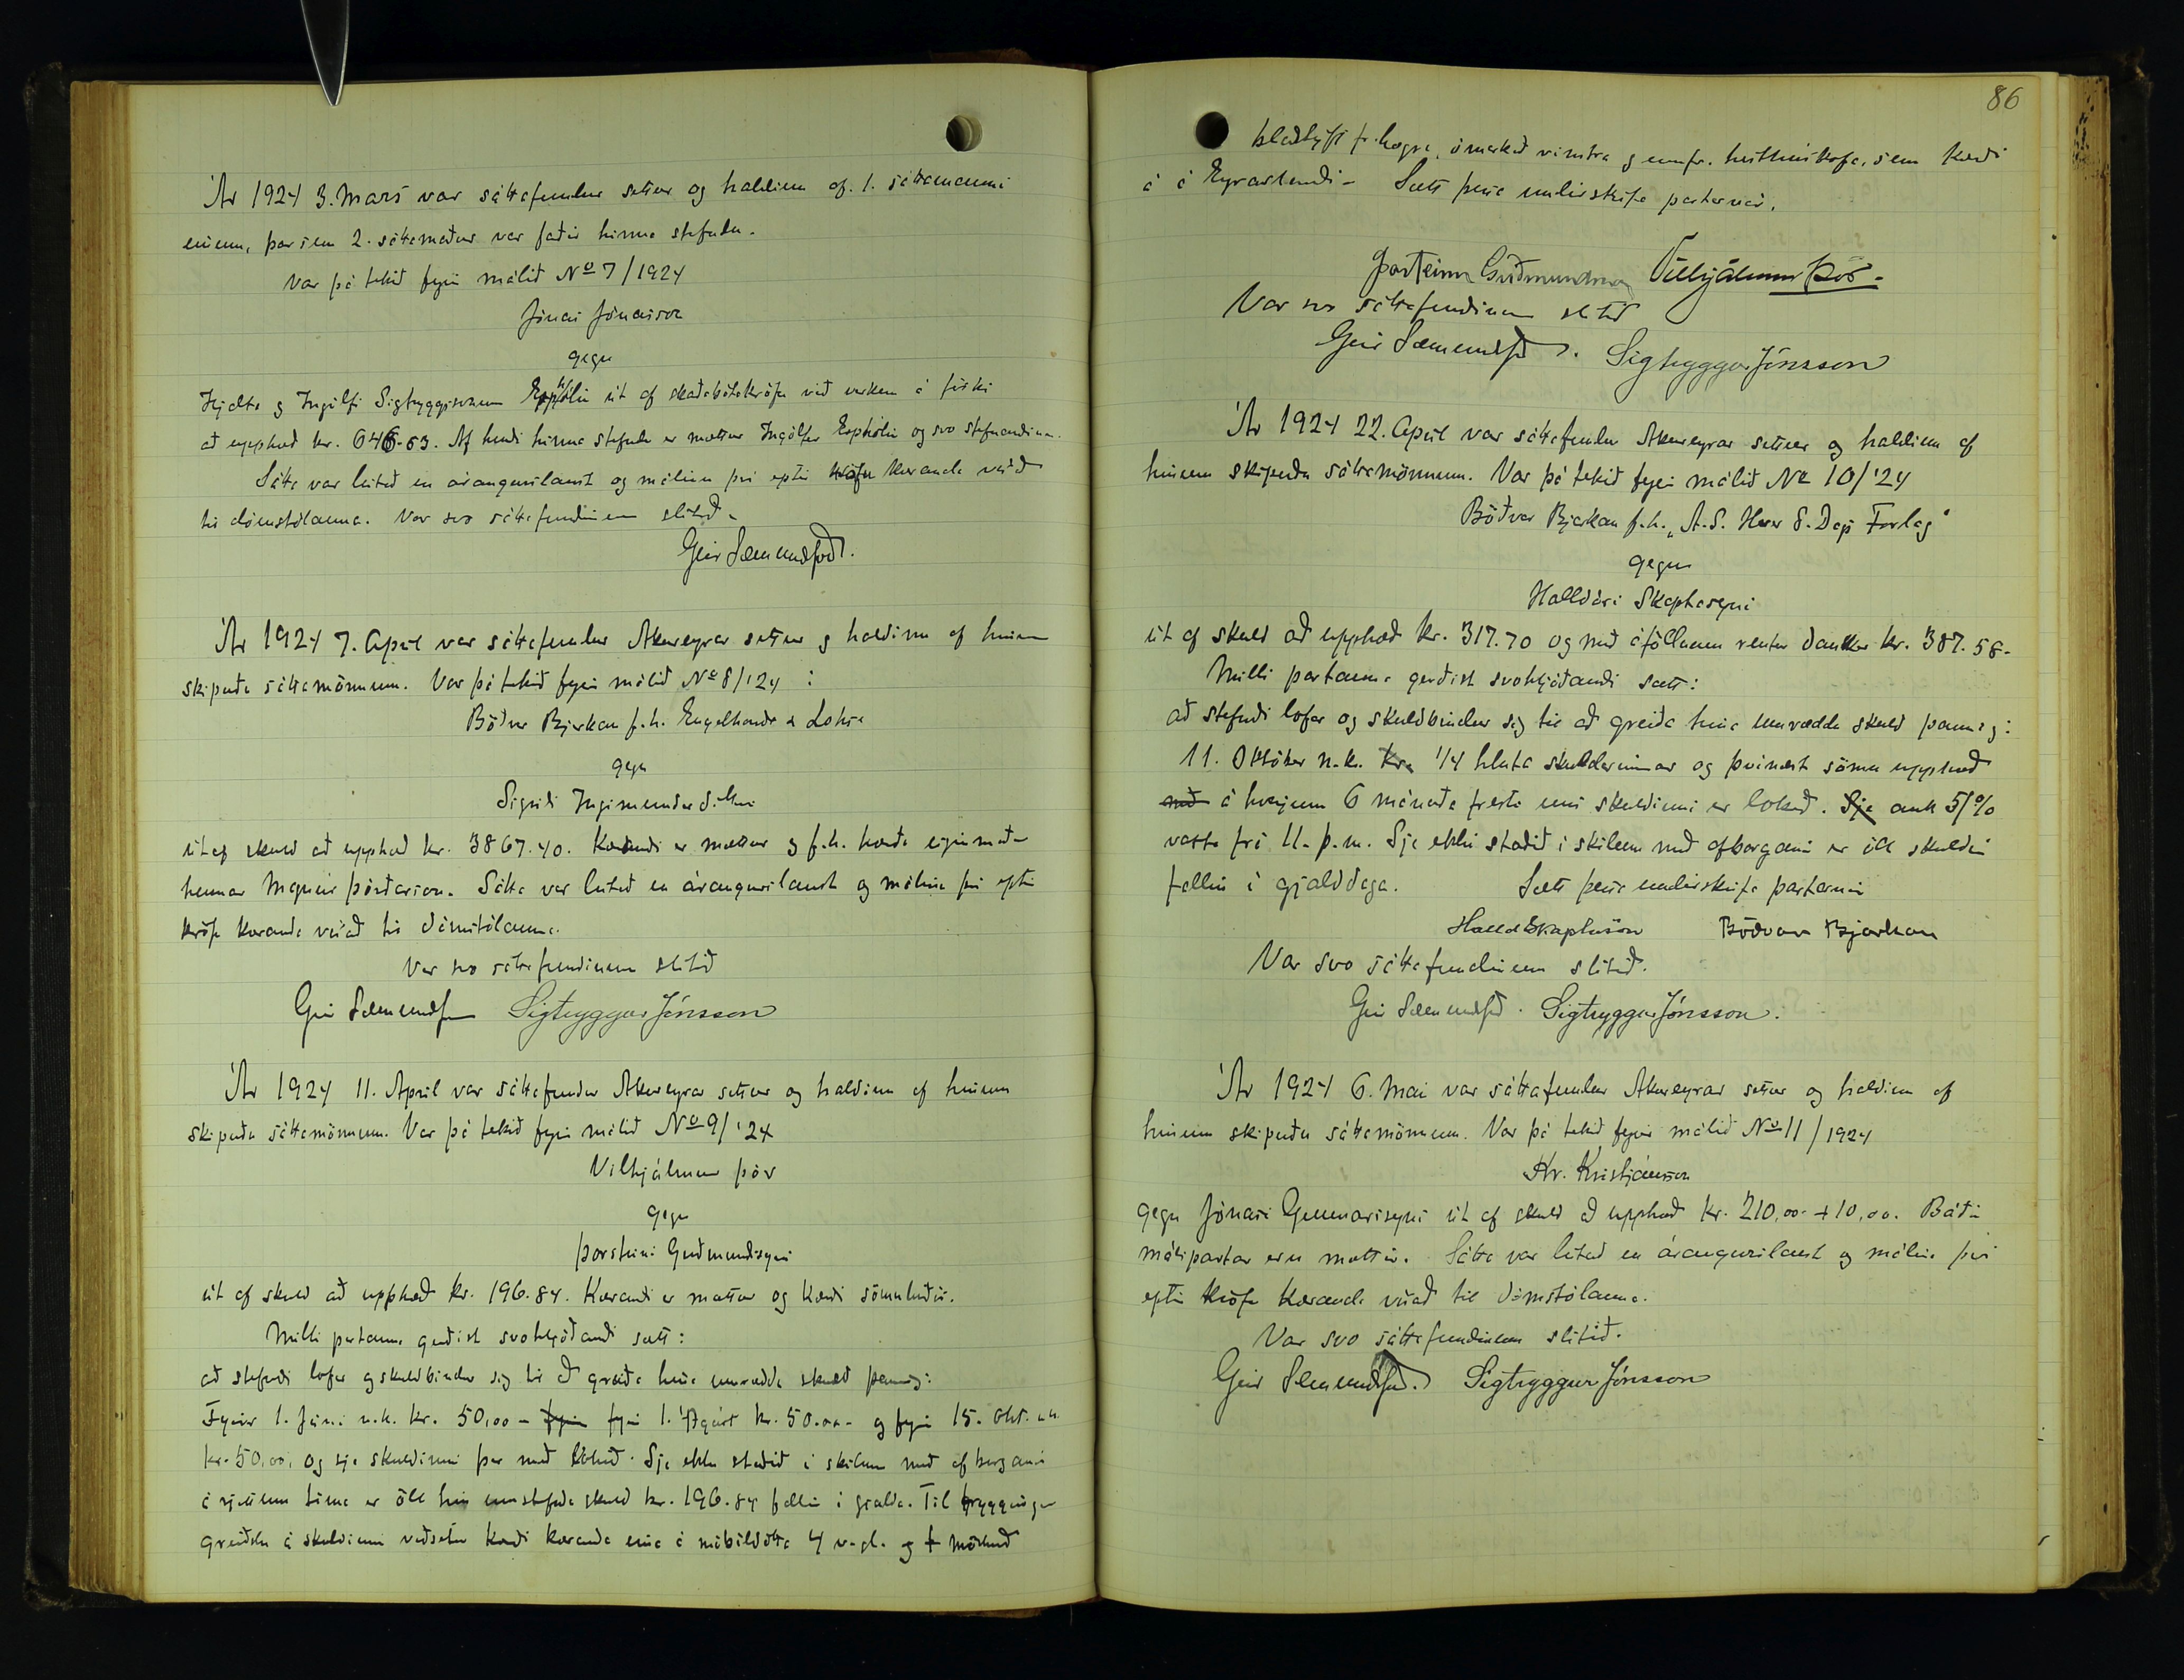 Ár 1924 3. Mars var sáttafundur settur og haldinn af 1. sáttamanni
einum, þar sem 2. sáttamaður var faðir hinna stefndu.
Var þá tekið fyrir málið No 7/1924
Jónas Jónasson
gegn
Hjalta og Ingólfi Sigtryggssonum Espholin út af skaðabótakröfu við verkun á fiski
að upphæð kr. 646-63. Af hendi hinna stefndu er mættur Ingólfur Espholin og svo stefnandinn.
Sátta var leitað en árangurslaust og málinu því eptir kröfu kæranda vísað
til dómstólanna. Var svo sáttafundinum slitið.
Geir Sæmundsson.
Ár 1924 7. Apríl var sáttafundur Akureyrar settur og haldinn af hinum
skipuðu sáttamönnum. Var þá tekið fyrir málið No 8/'24 :
Böðvar Bjarkan f.h. Engelhardt & Lohse
gegn
Sigríði Ingimundardóttur
út af skuld að upphæð kr. 3867.40. Kærandi er mættur og f.h. kærðu eiginmaður
hennar Magnús Þórðarson. Sátta var leitað en árangurslaust og málinu því eptir
kröfu kæranda vísað til dómstólanna.
Var svo sáttafundinum slitið
Geir Sæmundsson Sigtryggur Jónsson
Ár 1924 11. Apríl var sáttafundur Akureyrar settur og haldinn af hinum
skipuðu sáttamönnum. Var þá tekið fyrir málið No 9/'24
Vilhjálmur Þór
gegn
Þorsteini Guðmundssyni
út af skuld að upphæð kr. 196.84. Kærandi er mættur og kærði sömuleiðis.
Milli partanna gerðist svohljóðandi sætt:
að stefndi lofar og skuldbindur sig til að greiða hina umræddu skuld þannig:
Fyrir 1. Júni n.k. kr. 50,00 - fyrir fyrir 1. Ágúst kr. 50.00 - og fyrir 15. Okt. n.k.
kr. 50,00, og sje skuldinni þar með lokið. Sje ekki staðið í skilum með afborganir
á rjettum tíma er öll hin umstefnda skuld kr. 196.84 fallin í gjaldd. Til tryggingar
greiðslu á skuldinni veðsetur kærði kæranda 4 v. gl. og mörkuð
86
blaðstýft fr. hægra, ómarkað vinstra og ennfr. sem kærði
á á Eyrarlandi - Sætt þessa undirskrifa partarnir.
Þorsteinn Guðmundsson Vilhjálmur Þór -
Var svo sáttafundinum slitið
Geir Sæmundsson. Sigtryggur Jónsson
Ár 1924 22. Apríl var sáttafundur Akureyrar settur og haldinn af
hinum skipuðu sáttamönnum. Var þá tekið fyrir málið No 10/'24
Böðvar Bjarkan f.h. „A.S. Forlag"
gegn
Halldóri Skaptasyni
út af skuld að upphæð kr. 317.70 og með áföllnum rentum danskar kr. 387.58-
Milli partanna gerðist svohljóðandi sætt:
að stefndi lofar og skuldbindur sig til að greiða hina umræddu skuld þannig:
11. Október n.k. kr. 1/4 hluta skuldarinnar og þvínæst sömu upphæð
með á hverjum 6 mánaða fresti uns skuldinni er lokið. Sje auk 5%
vaxta frá 11. þ.m. Sje ekki staðið í skilum með afborganir er öll skuldin
fallin í gjalddaga. Sætt þessa undirskrifa partarnir
Halld Skaptason Böðvar Bjarkan
Var svo sáttafundinum slitið.
Geir Sæmundsson. Sigtryggur Jónsson.
Ár 1924 6. Mai var sáttafundur Akureyrar settur og haldinn af
hinum skipuðu sáttamönnum. Var þá tekið fyrir málið No 11/1924
Kr. Kristjánsson
gegn Jónasi Gunnarssyni út af skuld að upphæð kr. 210,00 + 10,00. Báðir
málspartar eru mættir. Sátta var leitað en árangurslaust og málinu því
eptir kröfu kæranda vísað til dómstólanna.
Var svo sáttafundinum slitið.
Geir Sæmundsson. Sigtryggur Jónsson